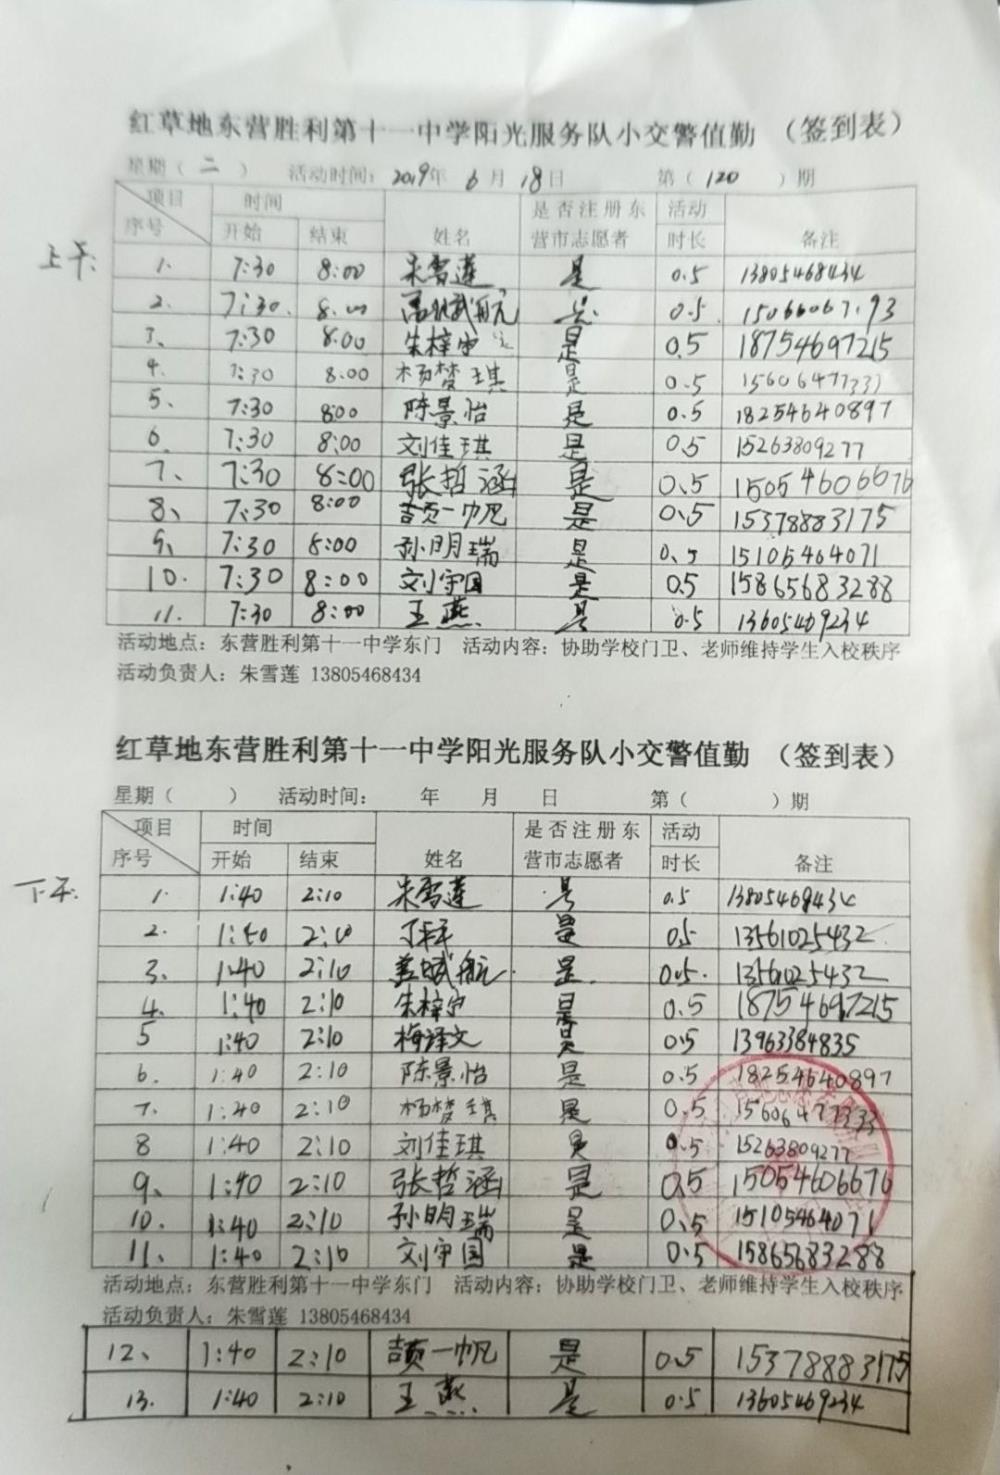 红草地东营胜利第十一中学阳光服务队小交警值勤 (签到表)
星期(二) 活动时间: 2019年 6月 18日 第(120)期
项目 时间 是否注册东 活动
序号 开始 结束 姓名 营市志愿者 时长 备注
上午:
1. 7:30 8:00 朱雪莲 是 0.5 13805468434
2. 7:30. 8:00 是 0.5
3、 7:30 8:00 朱梓宁 是 0.5 18754697215
4. 7:30 8:00 杨梦琪 是 0.5
5、 7:30 8:00 陈景怡 是 0.5 18254640897
6. 7:30 8:00 刘佳琪 是 0.5 15263809277
7、 7:30 8:00 张哲涵 是 0.5 15054606676
8、 7:30 8:00 吉贡一帆 是 0.5 15378883175
9、 7:30 8:00 孙明瑞 是 0.5 15105464071
10. 7:30 8:00 刘宇国 是 0.5 15865683288
11. 7:30 8:00 王燕 是 0.5 13605469234
活动地点: 东营胜利第十一中学东门 活动内容: 协助学校门卫、老师维持学生入校秩序
活动负责人: 朱雪莲 13805468434
红草地东营胜利第十一中学阳光服务队小交警值勤 (签到表)
星期( ) 活动时间: 年 月 日 第( )期
项目 时间 是否注册东 活动
序号 开始 结束 姓名 营市志愿者 时长 备注
下午:
1. 1:40 2:10 朱雪莲 是 0.5 13805468434
2. 1:40 2:10 是 0.5 13561025432
3. 1:40 2:10 是 0.5. 13561025432
4. 1:40 2:10 朱梓宁 是 0.5 18754697215
5 1:40 2:10 梅译文 是 0.5 13963384835
6. 1:40 2:10 陈景怡 是 0.5 18254640897
7. 1:40 2:10 杨梦琪 是 0.5 15606477333
8 1:40 2:10 刘佳琪 是 0.5 15263809277
9、 1:40 2:10 张哲涵 是 0.5 15054606676
10. 1:40 2:10 孙明瑞 是 0.5 15105464071
11. 1:40 2:10 刘宇国 是 0.5 15865683288
活动地点: 东营胜利第十一中学东门 活动内容: 协助学校门卫、老师维持学生入校秩序
活动负责人: 朱雪莲 13805468434
12、 1:40 2:10 吉贡一帆 是 0.5 15378883175
13. 1:40 2:10 王燕 是 0.5 13605469234